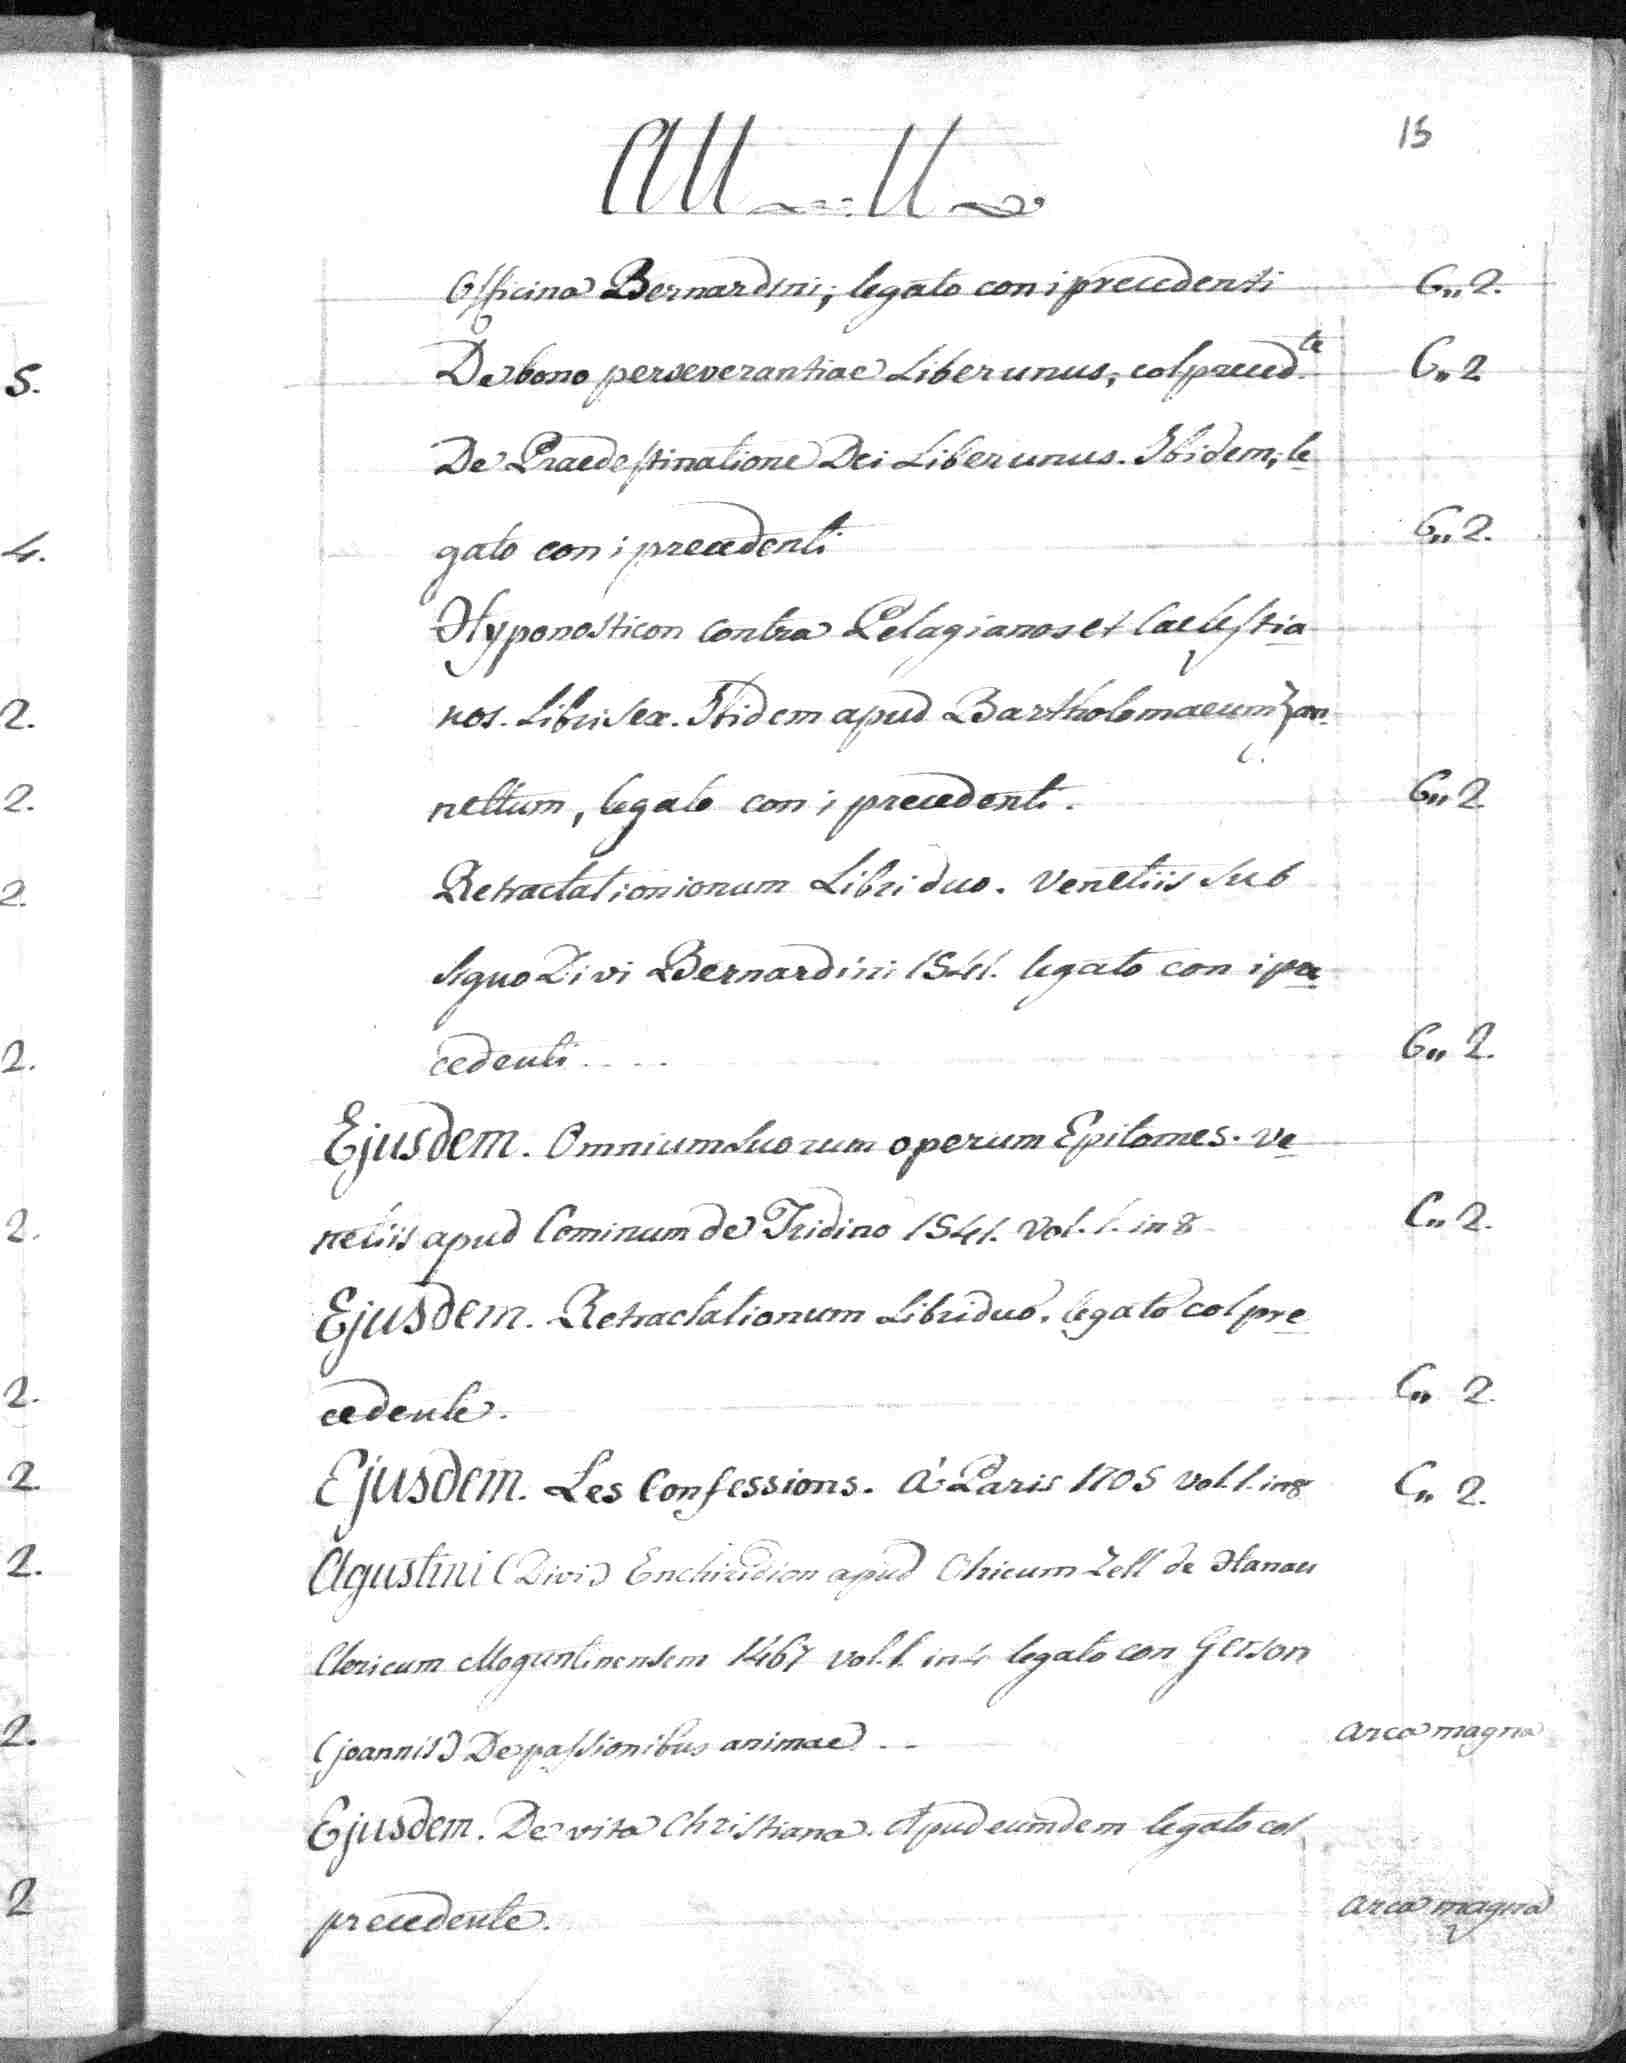 15
AU — U
Officina Bernardini; legato con i precedenti G„ 2.
De bono perseverantiae Liber unus; col preced.te G„ 2
De Praedestinatione Dei Liber unus. Ibidem; le
gato con i precedenti G„ 2.
Hyponosticon contra Pelagianos et Caelestia
nos. Libri sex. Ibidem apud Bartholomaeum Zan
nettum, legato con i precedenti. G„ 2
Retractationionum Libri duo. Venetiis sub
signo Divi Bernardini 1541. legato con i pre
cedenti .... G„ 2.
Ejusdem. Omnium suorum operum Epitomes. Ve
netiis apud Cominum de Tridino 1541. Vol. 1. in 8 C„ 2.
Ejusdem. Retractationum Libri duo. legato col pre
cedente. C„ 2.
Ejusdem. Les Confessions. à Paris 1705 vol. 1. in 8 C„ 2.
Agustini (Divi) Enchiridion apud Olricum Zell de Hanau
Clericum Moguntinensem 1467 vol. 1. in 4 legato con Gerson
(joannis) De passionibus animae .. arca magna
Ejusdem. De vita Christiana. Apud eumdem legato col
precedente. arca magna
5.
4.
2.
2.
2.
2.
2.
2.
2.
2.
2.
2